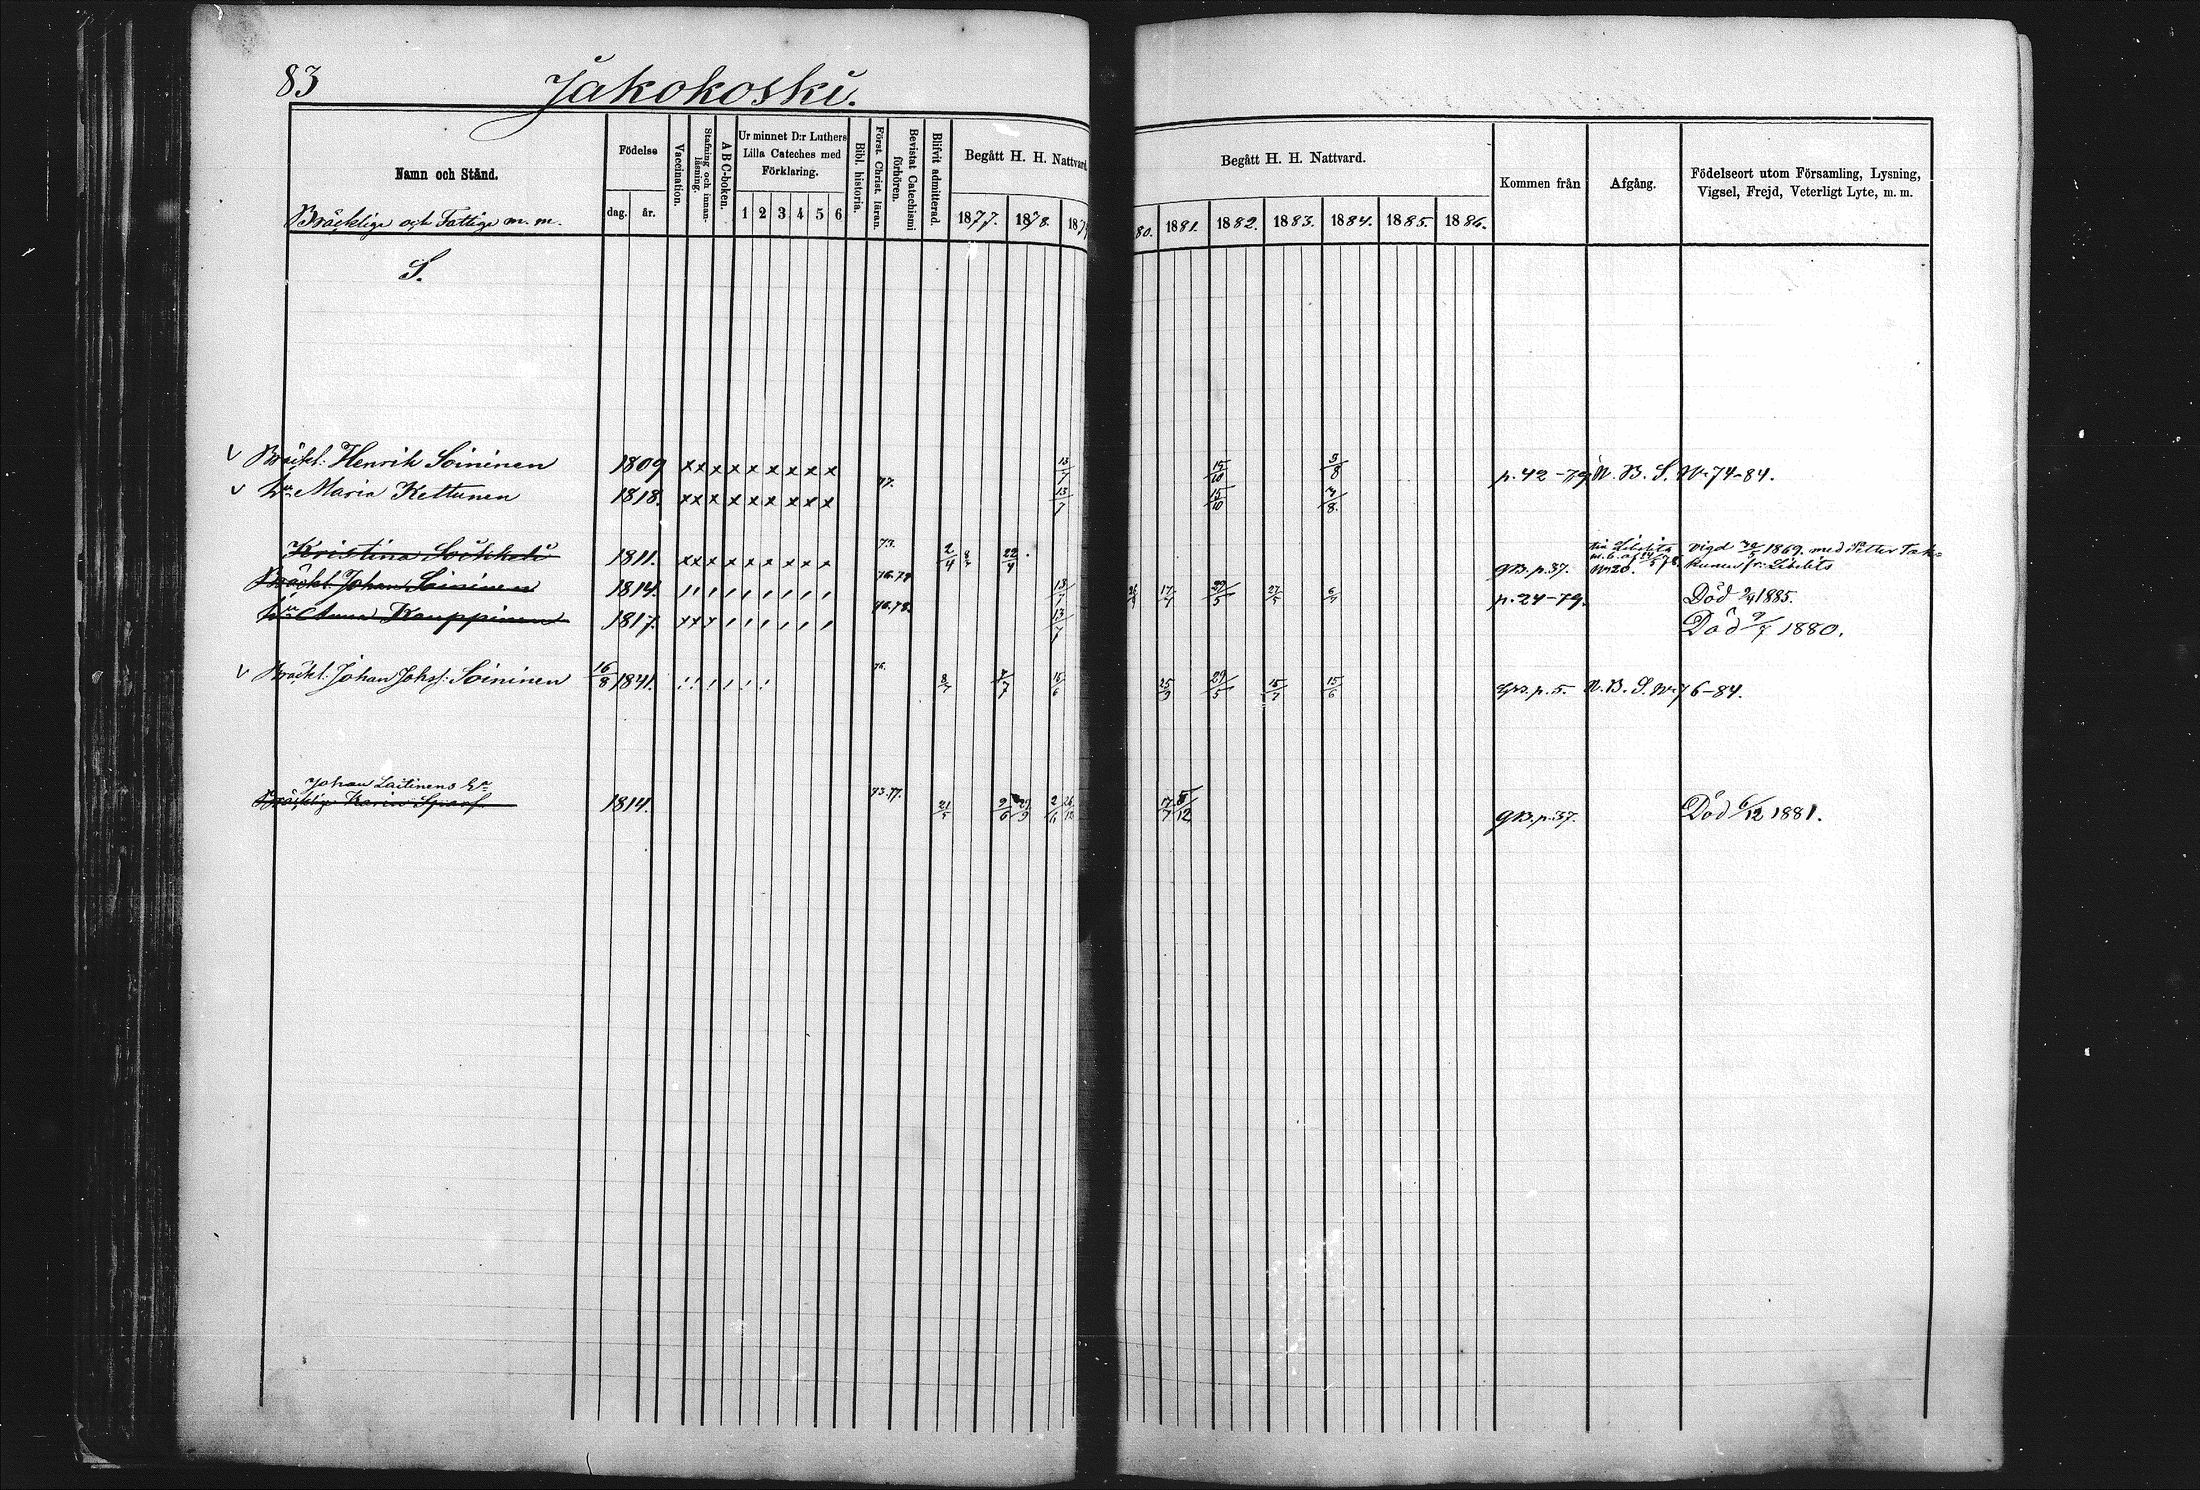 83 Jakokoski.
Namn och Stånd. Födelse dag. år. Vaccination. Stafning och innanläsning. ABC-boken. Ur minnet D:r Luthers Lilla Cateches med Förklaring. 1 2 3 4 5 6 Bibl. historia. Först. Christ. läran. Bevistat Catechismi förhören. Blifvit admitterad. Begått H. H. Nattvard. 1877. 1878. 187
Begått H. H. Nattvard. 80. 1881. 1882. 1883. 1884. 1885. 1886. Kommen från Afgång. Födelseort utom Församling, Lysning, Vigsel, Frejd, Veterligt Lyte, m. m.
Bräcklige och Fattige m. m.
S.
v Bräckl: Henrik Soininen 1809 x x x x x x x x x 13/7 15/10 3/8 p. 42-79 N. B. S. N:74-84.
v Hu Maria Kettunen 1818. x x x x x x x x x 77. 13/7 15/10 3/8.
Kristina 1811. x x x x x x x x x 73. 2/4 22/4 gB. p. 37. Libelits vigd 1869. med Petter
N:20. Libelits
Bräckl Johan Soininen 1814. 76.79 13/7 17/7 29/5 27/5 p. 24-79. Död 1885.
Hu Anna Kauppinen 1817. x x x 76.78. 13/7 Död 9/7 1880.
v Bräckl: Johan Johss: Soininen 16/8 1841. 76. 8/7 7/7 15/6 25/9 29/5 15/7 15/6 gB. p. 5. N. B. S. N:76-84.
Johan Laitinens Ea
Bräcklige Karin 1814. 73.77. 21/5 9/6 29/9 2/6 17/7 5/12 gB. p. 37. Död 6/12 1881.